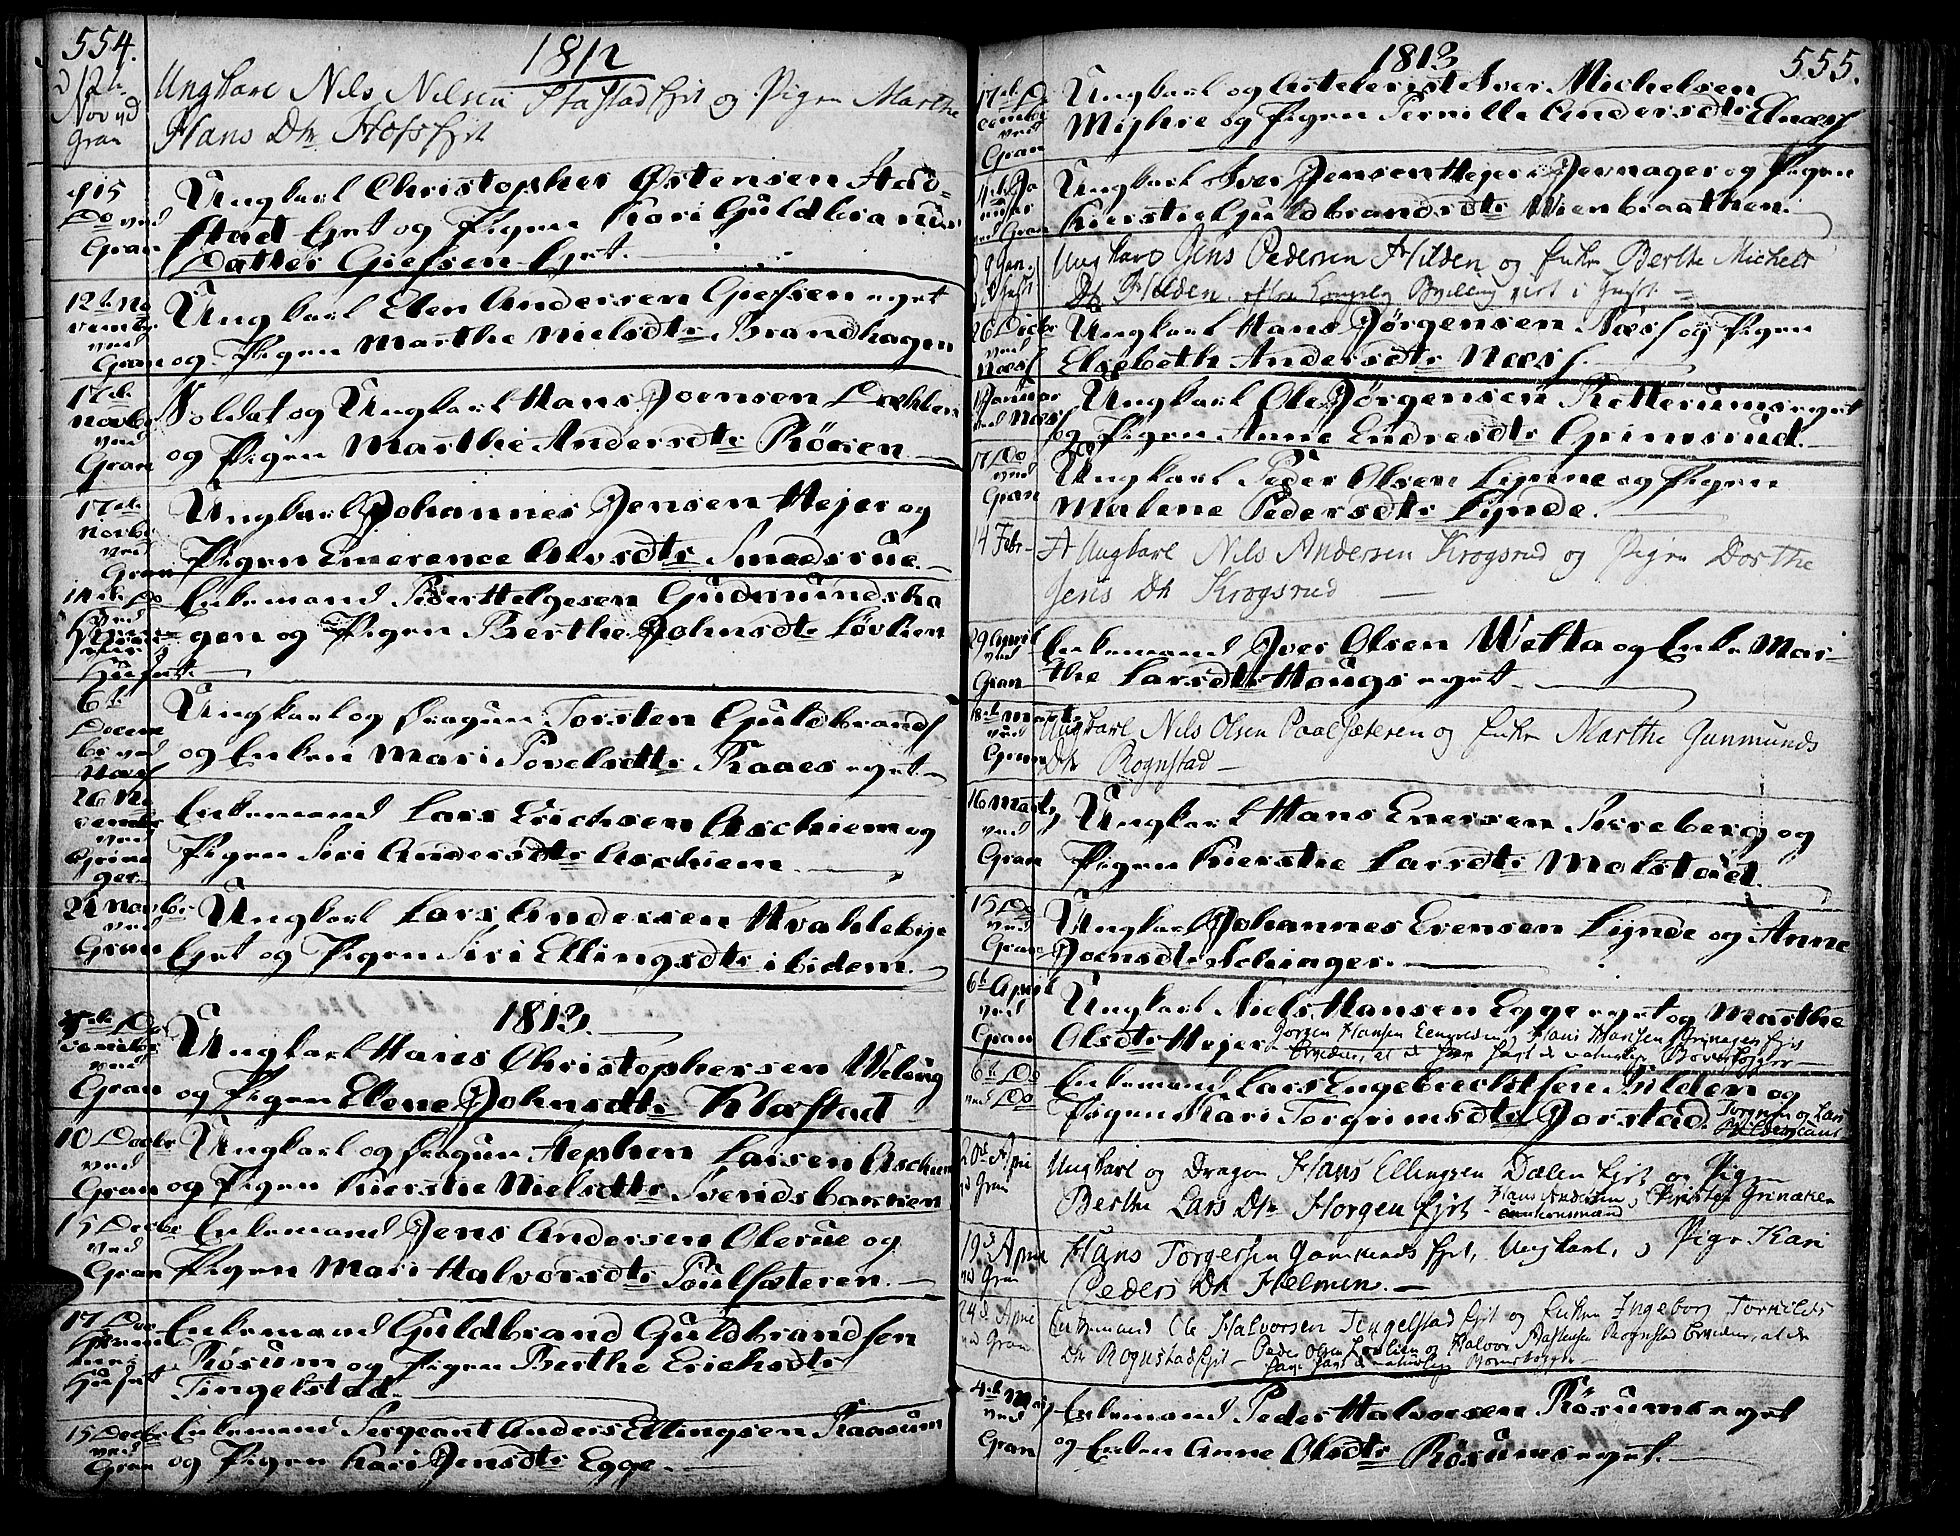 554.
1812
d 12te Nov. ved Gran
Ungkarl Nils Nilsen Stastad Ejet og Pigen Marthe
Hans Dtr Hofs Ejet
d 15 Do ved Gran
Ungkarl Christopher Østensen Stad-
stad Eyet og Pigen Kari Guldbrands
Datter Giefsen Eyet.
12te November ved Gran
Ungkarl Elen Andersen Giefsen eyet
og Pigen Marthe Nielsdtr Brandhagen
17de Novbr ved Gran
Soldat og Ungkarl Hans Joensen Dæhlen
og Pigen Marthe Andersdtr Röisen
17de Novbr ved Gran
Ungkarl Johannes Jensen Hejer og
Pigen Emerence Alvsdtr Smedsrue.
Enkemand Peder Helgesen Gudmundsha
gen og Pigen Berthe Johnsdtr Løvlien
6te Decembr ved Næss
Ungkarl og Dragun Torsten Guldbrands
og Enken Mari Povelsdtr Raaes eyet
26 November ved Grinager
Enkemand Lars Erichsen Aschiem og
Pigen Siri Andersdtr Aschiem
21 Novbr ved Gran
Ungkarl Lars Andersen Hvahlebye
Eyet og Pigen Siri Ellingsdtr ibidem.
1813.
December ved Gran
Ungkarl Hans Christophersen Wiliug
og Pigen Elene Johnsdtr Klæstad
10 Decbr ved Gran
Ungkarl og Dragun Stephen Larsen Aschiem
og Pigen Kierstie Nielsdtr Svendsbacken
15 Decbr ved Gran
Enkemand Jens Andersen Olerue og
Pigen Mari Halvorsdtr Poulsæteren.
17 Do Hiemme i Huset
Enkemand Guldbrand Guldbrandsen
Røsum og Pigen Berthe Erichsdtr
Tingelstad.
15 Decbr ved Gran
Enkemand Sergeant Anders Ellingsen Raasum
og Pigen Kari Jensdtr Egge.
555.
1813
17de December ved Gran
Ungkarl og Artellerist Iver Michelsen
Mighre og Pigen Pernille Andersdtr Elnæss
4de Januar ved Gran
Ungkarl Iver Jensen Hejer i Jevnager og Pigen
Kierstie Guldbrandsdtr Wienbraathen.
9 Jan.
Ungkarl Jens Pedersen Hilden og Enke Berthe Michels
Dtr Hilden. efter Kongelig Bevilling viet i Huset
26 Decbr ved Næss
Ungkarl Hans Jørgensen Næss og Pigen
Elsebeth Andersdtr Næss.
Januar ved Næss
Ungkarl Ole Jørgensen Retterumseyet
og Pigen Anne Endresdtr Grimsrud.
17 Do ved Gran
Ungkarl Peder Olsen Lynne og Pigen
Malene Pedersdtr Lynde.
14 Febr
Ungkarl Nils Andersen Krogsrud og Pigen Dorthe
Jens Dtr Krogsrud
29 April ved Gran
Enkemand Iver Olsen Wetta og Enke Mar-
the Larsdtr Hougs eyet
18de Marts ved Gran
Ungkarl Nils Olsen Paalsæteren og Enke Marthe Gunmunds
Dtr Rognstad
16 Marts ved Gran
Ungkarl Hans Enersen Sørreberg og
Pigen Kierstie Larsdtr Molstad.
15 Do ved Gran
Ungkarl Johannes Evensen Lynde og Anne
Joensdtr Schiager.
6te April ved Gran
Ungkarl Niels Hansen Egge eyet og Marthe
Olsdtr Hejer Jørgen Hansen, Hans Hansen Grinager Ejet
6te Do ved Do
Enkemand Lars Engebrechtsen Bilden og
Pigen Mari Torgrimsdtr Jorstad.
20de April ved Gran
Ungkarl og Dragon Hans Ellingsen Dælen Ejet og Pigen
Berthe Lars Dtr Horgen Ejet Hans Andersen
19de April ved Gran
Hans Torgersen Ejet, Ungkarl, og Pige Kari
Peders Dtr Helmen.
24de April ved Gran
Enkemand Ole Halvorsen Tingelstad Ejet og Enken Ingebor Torkilds
Dtr Rognstad Ejet
4de Maj ved Gran
Enkemand Peder Halvorsen Røsums eyet
og Enken Anne Olsdtr Røsums eyet.